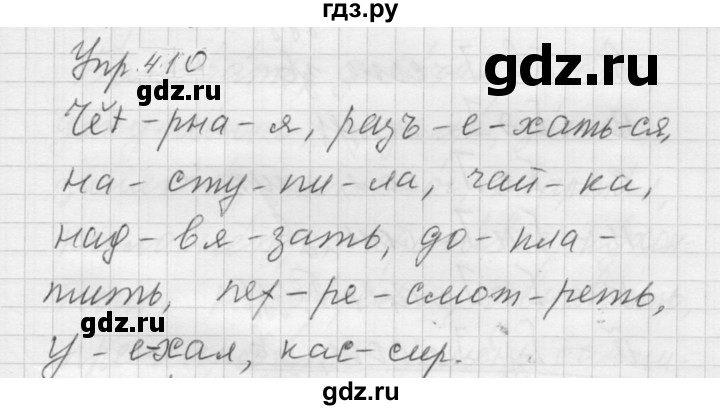 гдз.ру
Упр. 410
gdz.ru
gdz.ru
Чёт-рна-я, разъ-е-хать-ся,
на-сту-пи-ла, чай-ка,
над-вя-зать, до-пла-
тить, пет-ре-смот-реть,
gdz.ru
у-ехал, кас-сир.
gdz.ru